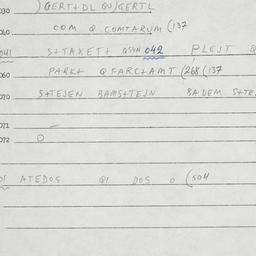 030 )GERT+DL QU)GERTL
040 COM Q COMTARUM (137
041 S+TAXET+ QSYN 042 PLEJT Q
060 PARK+ Q FARC+AMT (268 (137
070 S+TEJEN BAMS+TEJN BADEM S+TE
071
072 O
01 ATEDOS QI DOS O (504